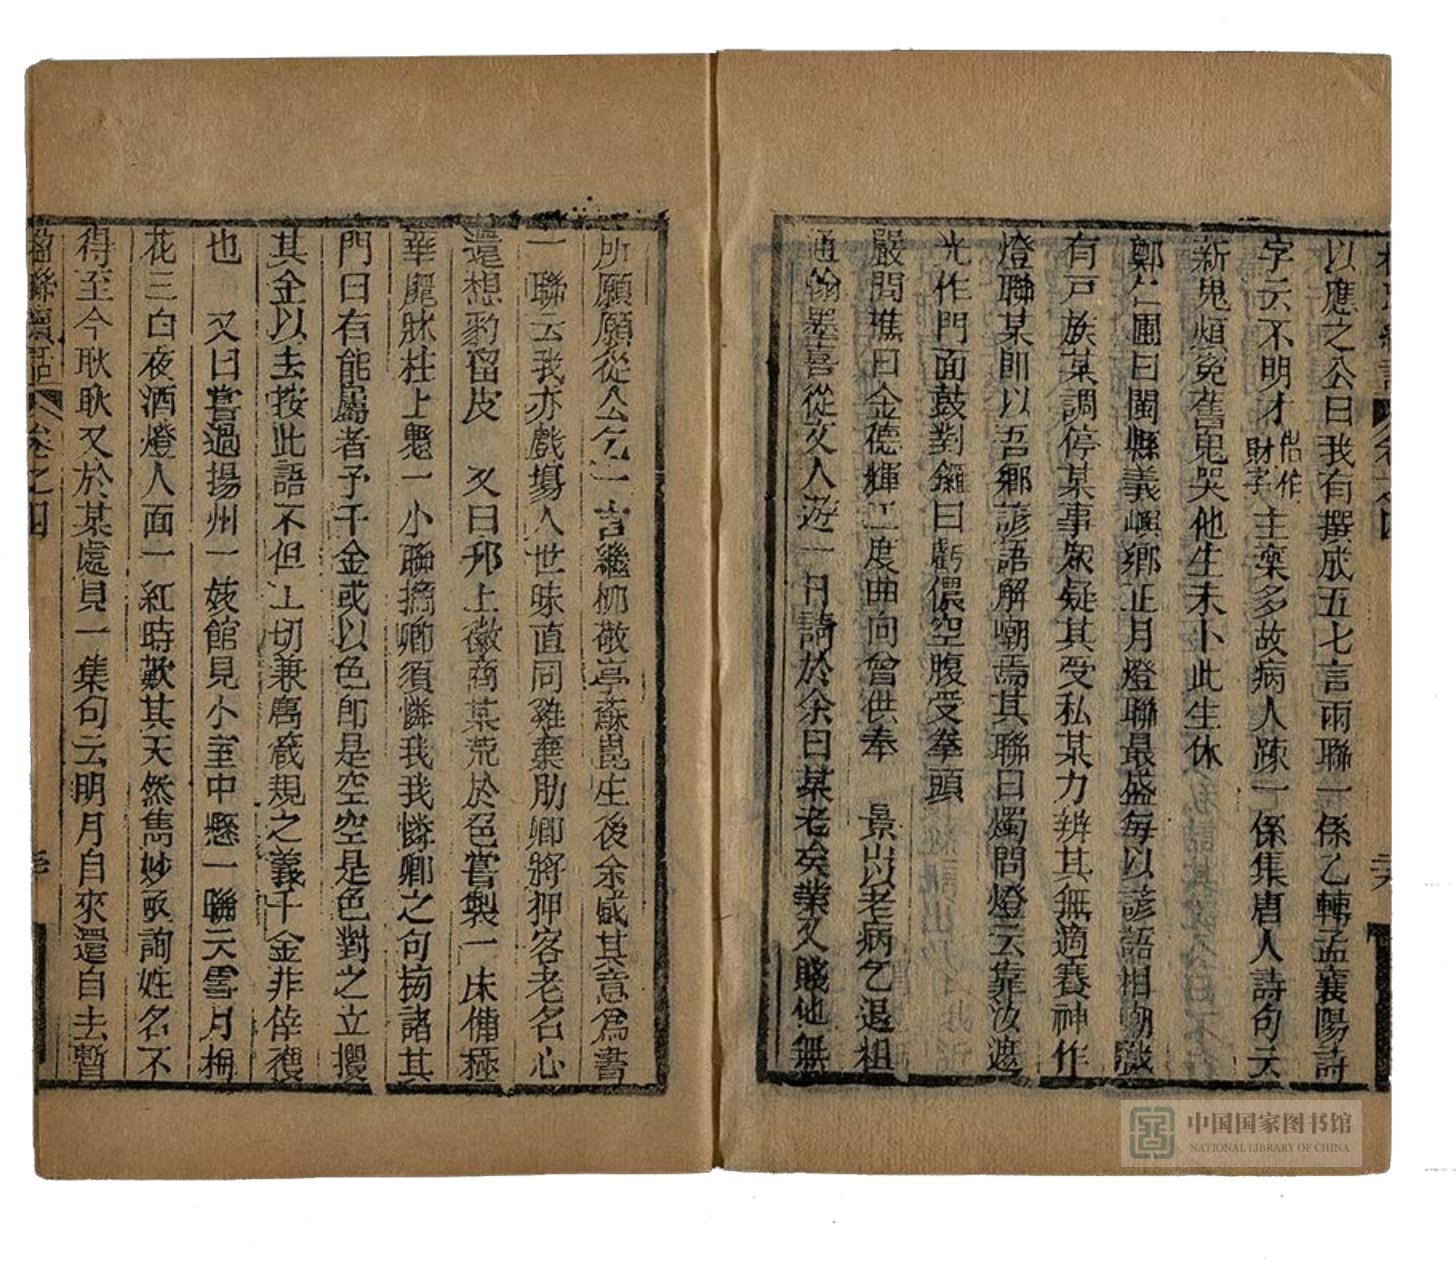 以應之公曰我有撰成五七言兩聯一係乙轉孟襄陽詩
字云不明才借作財字主棄多故病人疎一係集唐人詩句云
新鬼煩冤舊鬼哭他生未卜此生休
鄭仁圃曰閩縣義嶼鄉正月燈聯最盛每以諺語相嘲譏
有戸族某調停某事衆疑其受私某力辨其無適賽神作
燈聯某即以吾鄉諺語解嘲焉其聯曰燭問燈云靠汝遮
光作門面鼓對鑼曰虧儂空腹受拳頭
嚴問樵曰金德輝工度曲向曾供奉　景山以老病乞退祖
通翰墨喜從文人遊一日請於余曰某老矣業久賤他無
所願願從公乞一言繼柳敬亭蘇崑生後余感其意爲書
一聯云我亦戲塲人世味直同雞棄肋卿將狎客老名心
還想豹留皮　又曰邗上徽商某荒於色嘗製一床備極
華麗牀柱上懸一小聯摘卿須憐我我憐卿之句揭諸其
門曰有能屬者予千金或以色卽是空空是色對之立攫
其金以去按此語不但工切兼寓箴規之義千金非倖獲
也　又曰嘗過揚州一妓館見小室中懸一聯云雪月梅
花三白夜酒燈人面一紅時歎其天然雋妙亟詢姓名不
得至今耿耿又於某處見一集句云明月自來還自去暫
楹聯續話
卷之四
中国国家图书馆
NATIONAL LIBRARY OF CHINA